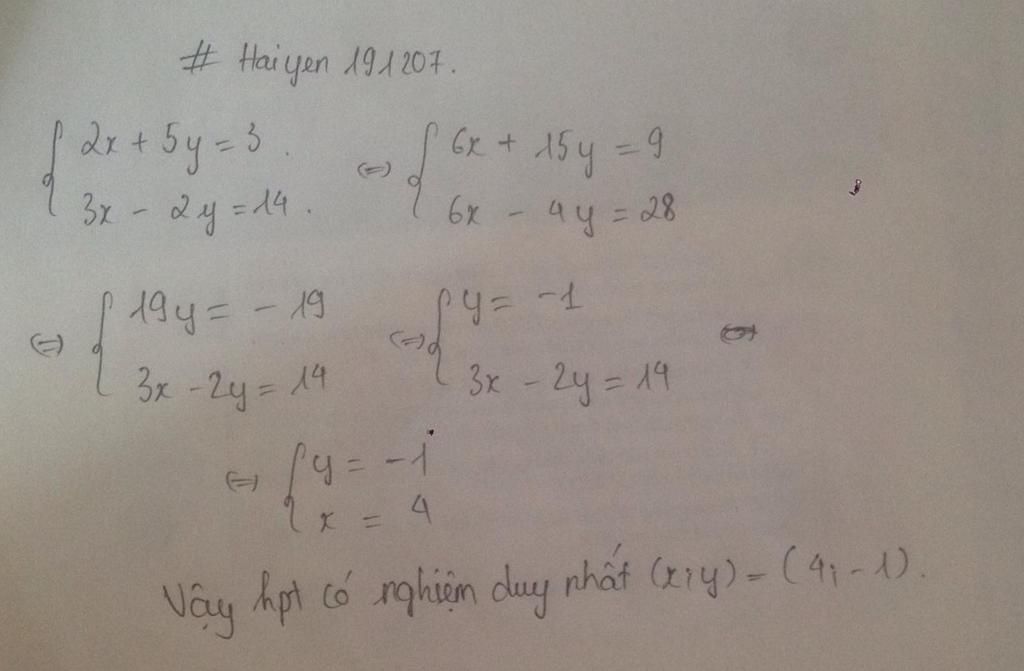 # Haiyen 191207.
{ 2x + 5y = 3 . ⇔ { 6x + 15y = 9
3x - 2y = 14 . 6x - 4y = 28
⇔ { 19y = - 19 ⇔ { y = -1 ⇔
3x - 2y = 14 3x - 2y = 14
⇔ { y = -1
x = 4
Vậy hpt có nghiệm duy nhất (x;y) = (4; -1).